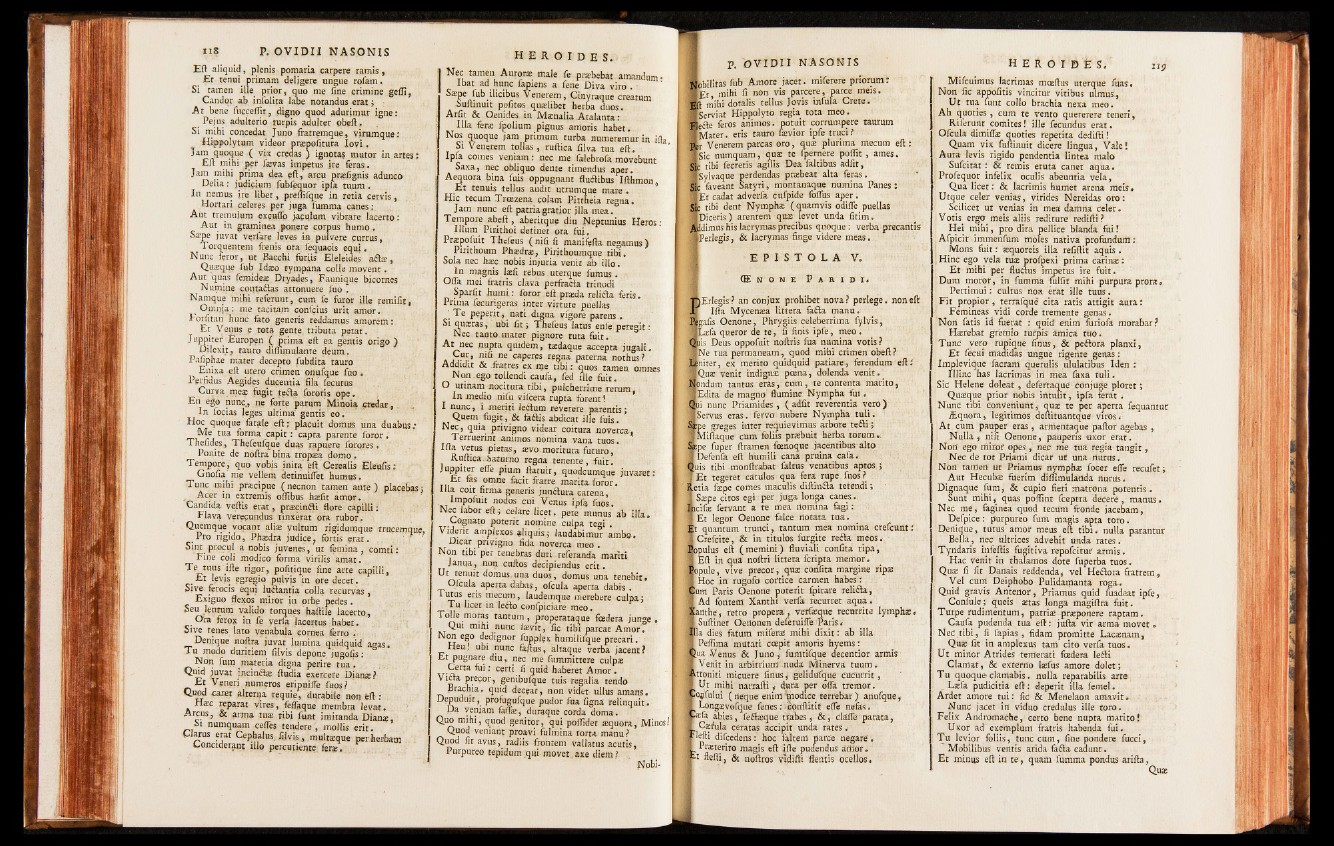 118 P. OVIDII NASONIS
Eſt aliquid, plenis pomaria carpere ramis,
Et tenui primam deligere ungue roſam.
Si tamen ille prior, quo me ſine crimine geſſi,
Candor ab inſolita labe notandus erat;
At bene ſucceſſit, digno quod adurimur igne:
Pejus adulterio turpis adulter obeſt.
Si mihi concedat Juno fratremque, virumque:
Hippolytum videor præpoſitura Iovi.
Jam quoque (vix credas) ignotas mutor in artes:
Eſt mihi per ſævas impetus ire feras.
Jam mihi prima dea eſt, arcu præſignis adunco
Delia: judicium ſubſequor ipſa tuum.
In nemus ire libet, preſſiſque in retia cervis,
Hortari celeres per juga ſumma canes:
Aut tremulum excuſſo jaculum vibrare lacerto:
Aut in graminea ponere corpus humo.
Sæpe juvat verſare leves in pulvere currus,
Torquentem frenis ora ſequacis equi.
Nunc feror, ut Bacchi furiis Eleleides actæ,
Quæque ſub Idæo tympana colle movent.
Aut quas ſemideæ Dryades, Faunique bicornes
Numine contactas attonuere ſuo.
Namque mihi referunt, cum ſe furor ille remiſit,
Omnia: me tacitam conſcius urit amor.
Forſitan hunc fato generis reddamus amorem:
Et Venus e tota gente tributa petat.
Juppiter Europen (prima eſt ea gentis origo)
Dilexit, tauro diſſimulante deum.
Paſiphae mater decepto ſubdita tauro
Enixa eſt utero crimen onuſque ſuo.
Perfidus Aegides ducentia fila ſecutus
Curva meæ fugit tecta ſororis ope.
En ego nunc, ne forte parum Minoia credar,
In ſocias leges ultima gentis eo.
Hoc quoque fatale eſt: placuit domus una duabus:
Me tua forma capit: capta parente ſoror.
Theſides, Theſeuſque duas rapuere ſorores.
Ponite de noſtra bina tropæa domo.
Tempore, quo vobis inita eſt Cerealis Eleuſis:
Gnoſia me vellem detinuiſſet humus.
Tunc mihi præcipue (necnon tamen ante) placebas;
Acer in extremis oſſibus hæſit amor.
Candida veſtis erat, præcincti flore capilli:
Flava verecundus tinxerat ora rubor.
Quemque vocant aliæ vultum rigidumque trucemque,
Pro rigido, Phædra judice, fortis erat.
Sint procul a nobis juvenes, ut femina, comti:
Fine coli modico forma virilis amat.
Te tuus iſte rigor, poſitique ſine arte capilli,
Et levis egregio pulvis in ore decet.
Sive ferocis equi luctantia colla recurvas,
Exiguo flexos miror in orbe pedes.
Seu lentum valido torques haſtile lacerto,
Ora ferox in ſe verſa lacertus habet.
Sive tenes lato venabula cornea ferro.
Denique noſtra juvat lumina quidquid agas.
Tu modo duritiem ſilvis depone jugoſis:
Non ſum materia digna perire tua.
Quid juvat incinctæ ſtudia exercere Dianæ?
Et Veneri numeros eripuiſſe ſuos?
Quod caret alterna requie, durabile non eſt:
Hæc reparat vires, feſſaque membra levat.
Arcus, & arma tuæ tibi ſunt imitanda Dianæ,
Si numquam ceſſes tendere, mollis erit.
Clarus erat Cephalus ſilvis, multæque per herbam
Conciderant illo percutiente feræ.
HEROIDES.
Nec tamen Auroræ male ſe præbebat amandum:
Ibat ad hunc ſapiens a ſene Diva viro.
Sæpe ſub ilicibus Venerem, Cinyraque creatum
Suſtinuit poſitos quælibet herba duos.
Arſit & Oenides in Mænalia Atalanta:
Illa feræ ſpolium pignus amoris habet.
Nos quoque jam primum turba numeremur in iſta,
Si Venerem tollas, ruſtica ſilva tua eſt.
Ipſa comes veniam: nec me ſalebroſa movebunt
Saxa, nec obliquo dente timendus aper.
Aequora bina ſuis oppugnant fluctibus Iſthmon,
Et tenuis tellus audit utrumque mare.
Hic tecum Trœzena colam Pittheia regna.
Jam nunc eſt patria gratior illa mea.
Tempore abeſt, aberitque diu Neptunius Heros:
Illum Pirithoi detinet ora ſui.
Præpoſuit Theſeus (niſi ſi manifeſta negamus)
Pirithoum Phædræ, Pirithoumque tibi.
Sola nec hæc nobis injuria venit ab illo.
In magnis læſi rebus uterque ſumus.
Oſſa mei fratris clava perfracta trinodi
Sparſit humi: ſoror eſt præda relicta feris.
Prima ſecurigeras inter virtute puellas
Te peperit, nati digna vigore parens.
Si quæras, ubi ſit; Theſeus latus enſe peregit:
Nec tanto mater pignore tuta fuit.
At nec nupta quidem, tædaque accepta jugali.
Cur, niſi ne caperes regna paterna nothus?
Addidit & fratres ex me tibi: quos tamen omnes
Non ego tollendi cauſa, ſed ille fuit.
O utinam nocitura tibi, pulcherrime rerum,
In medio niſu viſcera rupta forent!
I nunc, i meriti lectum reverere parentis;
Quem fugit, & factis abdicat ille ſuis.
Nec, quia privigno videar coitura noverca,
Terruerint animos nomina vana tuos.
Iſta vetus pietas, ævo moritura futuro,
Ruſtica Saturno regna tenente, fuit.
Juppiter eſſe pium ſtatuit, quodcumque juvaret:
Et fas omne facit fratre marita ſoror.
Illa coit firma generis junctura catena,
Impoſuit nodos cui Venus ipſa ſuos.
Nec labor eſt; celare licet. pete munus ab illa.
Cognato poterit nomine culpa tegi.
Viderit amplexos aliquis; laudabimur ambo.
Dicar privigno fida noverca meo.
Non tibi per tenebras duri reſeranda mariti
Janua, non cuſtos decipiendus erit.
Ut tenuit domus una duos, domus una tenebit.
Oſcula aperta dabas, oſcula aperta dabis.
Tutus eris mecum, laudemque merebere culpa;
Tu licet in lecto conſpiciare meo.
Tolle moras tantum, properataque fœdera junge.
Qui mihi nunc ſævit, ſic tibi parcat Amor.
Non ego dedignor ſupplex humiliſque precari.
Heu! ubi nunc faſtus, altaque verba jacent?
Et pugnare diu, nec me ſummittere culpæ
Certa fui: certi ſi quid haberet Amor.
Victa precor, genibuſque tuis regalia tendo
Brachia. quid deceat, non videt ullus amans.
Depuduit, profuguſque pudor ſua ſigna relinquit.
Da veniam faſſæ, duraque corda doma.
Quo mihi, quod genitor, qui poſſidet æquora, Minos?
Quod veniant proavi fulmina torta manu?
Quod ſit avus, radiis frontem vallatus acutis,
Purpureo tepidum qui movet axe diem?
Nobi-
P. OVIDII NASONIS
Nobilitas ſub Amore jacet. miſerere priorum:
Et, mihi ſi non vis parcere, parce meis.
Eſt mihi dotalis tellus Jovis inſula Crete.
Serviat Hippolyto regia tota meo.
Flecte feros animos. potuit corrumpere taurum
Mater. eris tauro ſævior ipſe truci?
Per Venerem parcas oro, quæ plurima mecum eſt:
Sic numquam, quæ te ſpernere poſſit, ames.
Sic tibi ſecretis agilis Dea ſaltibus adſit,
Sylvaque perdendas præbeat alta feras.
Sic faveant Satyri, montanaque numina Panes:
Et cadat adverſa cuſpide foſſus aper.
Sic tibi dent Nymphæ (quamvis odiſſe puellas
Diceris) arentem quæ levet unda ſitim.
Addimus his lacrymas precibus quoque: verba precantis
Perlegis, & lacrymas finge videre meas.
EPISTOLA V.
ŒNONE PARIDI.
PErlegis? an conjux prohibet nova? perlege. non eſt
Iſta Mycenæa littera facta manu.
Pegaſis Oenone, Phrygiis celeberrima ſylvis,
Læſa queror de te, ſi ſinis ipſe, meo.
Quis Deus oppoſuit noſtris ſua numina votis?
Ne tua permaneam, quod mihi crimen obeſt?
Leniter, ex merito quidquid patiare, ferendum eſt:
Quæ venit indignæ pœna, dolenda venit.
Nondum tantus eras, cum, te contenta marito,
Edita de magno flumine Nympha fui.
Qui nunc Priamides, (adſit reverentia vero)
Servus eras. ſervo nubere Nympha tuli.
Sæpe greges inter requievimus arbore tecti;
Miſtaque cum foliis præbuit herba torum.
Sæpe ſuper ſtramen fœnoque jacentibus alto
Defenſa eſt humili cana pruina caſa.
Quis tibi monſtrabat ſaltus venatibus aptos;
Et tegeret catulos qua fera rupe ſuos?
Retia ſæpe comes maculis diſtincta tetendi;
Sæpe citos egi per juga longa canes.
Inciſæ ſervant a te mea nomina fagi:
Et legor Oenone falce notata tua.
Et quantum trunci, tantum mea nomina creſcunt:
Creſcite, & in titulos ſurgite recta meos.
Populus eſt (memini) fluviali conſita ripa,
Eſt in qua noſtri littera ſcripta memor.
Popule, vive precor, quæ conſita margine ripæ
Hoc in rugoſo cortice carmen habes:
Cum Paris Oenone poterit ſpirare relicta,
Ad fontem Xanthi verſa recurret aqua.
Xanthe, retro propera, verſæque recurrite lymphæ.
Suſtinet Oenonen deſeruiſſe Paris.
Illa dies fatum miſeræ mihi dixit: ab illa
Peſſima mutati cœpit amoris hyems:
Qua Venus & Juno, ſumtiſque decentior armis
Venit in arbitrium nuda Minerva tuum.
Attoniti micuere ſinus, geliduſque cucurrit,
Ut mihi narraſti, dura per oſſa tremor.
Conſului (neque enim modice terrebar) anuſque,
Longævoſque ſenes: conſtitit eſſe nefas.
Cæſa abies, ſectæque trabes, &, claſſe parata,
Cæſula ceratas accipit unda rates.
Fleſti diſcedens: hoc ſaltem parce negare.
Præterito magis eſt iſte pudendus amor.
Et fleſti, & noſtros vidiſti flentis ocellos.
HEROIDES. 119
Miſcuimus lacrimas mœſtus uterque ſuas.
Non ſic appoſitis vincitur vitibus ulmus,
Ut tua ſunt collo brachia nexa meo.
Ah quoties, cum te vento quererere teneri,
Riſerunt comites! ille ſecundus erat.
Oſcula dimiſſæ quoties repetita dediſti!
Quam vix ſuſtinuit dicere lingua, Vale!
Aura levis rigido pendentia lintea malo
Suſcitat: & remis eruta canet aqua.
Proſequor infelix oculis abeuntia vela,
Qua licet: & lacrimis humet arena meis.
Utque celer venias, virides Nereidas oro:
Scilicet ut venias in mea damna celer.
Votis ergo meis aliis rediture rediſti?
Hei mihi, pro dira pellice blanda fui!
Aſpicit immenſum moles nativa profundum:
Mons fuit: æquoreis illa reſiſtit aquis.
Hinc ego vela tuæ proſpexi prima carinæ:
Et mihi per fluctus impetus ire fuit.
Dum moror, in ſumma fulſit mihi purpura prora.
Pertimui: cultus non erat ille tuus.
Fit propior, terraſque cita ratis attigit aura:
Femineas vidi corde tremente genas.
Non ſatis id fuerat: quid enim furioſa morabar?
Hærebat gremio turpis amica tuo.
Tunc vero rupique ſinus, & pectora planxi,
Et ſecui madidas ungue rigente genas:
Implevique ſacram querulis ululatibus Iden:
Illinc has lacrimas in mea ſaxa tuli.
Sic Helene doleat, deſertaque conjuge ploret;
Quæque prior nobis intulit, ipſa ferat.
Nunc tibi conveniunt, quæ te per aperta ſequantur
Æquora, legitimos deſtituantque viros.
At cum pauper eras, armentaque paſtor agebas,
Nulla, niſi Oenone, pauperis uxor erat.
Non ego miror opes, nec me tua regia tangit,
Nec de tot Priami dicar ut una nurus.
Non tamen ut Priamus nymphæ ſocer eſſe recuſet;
Aut Hecubæ fuerim diſſimulanda nurus.
Dignaque ſum, & cupio fieri matrona potentis.
Sunt mihi, quas poſſint ſceptra decere, manus.
Nec me, faginea quod tecum fronde jacebam,
Deſpice: purpureo ſum magis apta toro.
Denique, tutus amor meus eſt tibi. nulla parantur
Bella, nec ultrices advehit unda rates.
Tyndaris infeſtis fugitiva repoſcitur armis.
Hac venit in thalamos dote ſuperba tuos.
Quæ ſi ſit Danais reddenda, vel Hectora fratrem,
Vel cum Deiphobo Pulidamanta roga.
Quid gravis Antenor, Priamus quid ſuadeat ipſe,
Conſule; queis ætas longa magiſtra fuit.
Turpe rudimentum, patriæ præponere raptam.
Cauſa pudenda tua eſt: juſta vir arma movet.
Nec tibi, ſi ſapias, fidam promitte Lacænam,
Quæ ſit in amplexus tam cito verſa tuos.
Ut minor Atrides temerati fœdera lecti
Clamat, & externo læſus amore dolet;
Tu quoque clamabis. nulla reparabilis arte
Læſa pudicitia eſt: deperit illa ſemel.
Ardet amore tui: ſic & Menelaon amavit.
Nunc jacet in viduo credulus ille toro.
Felix Andromache, certo bene nupta marito!
Uxor ad exemplum fratris habenda fui.
Tu levior foliis, tunc cum, ſine pondere ſucci,
Mobilibus ventis arida facta cadunt.
Et minus eſt in te, quam ſumma pondus ariſta,
Quæ